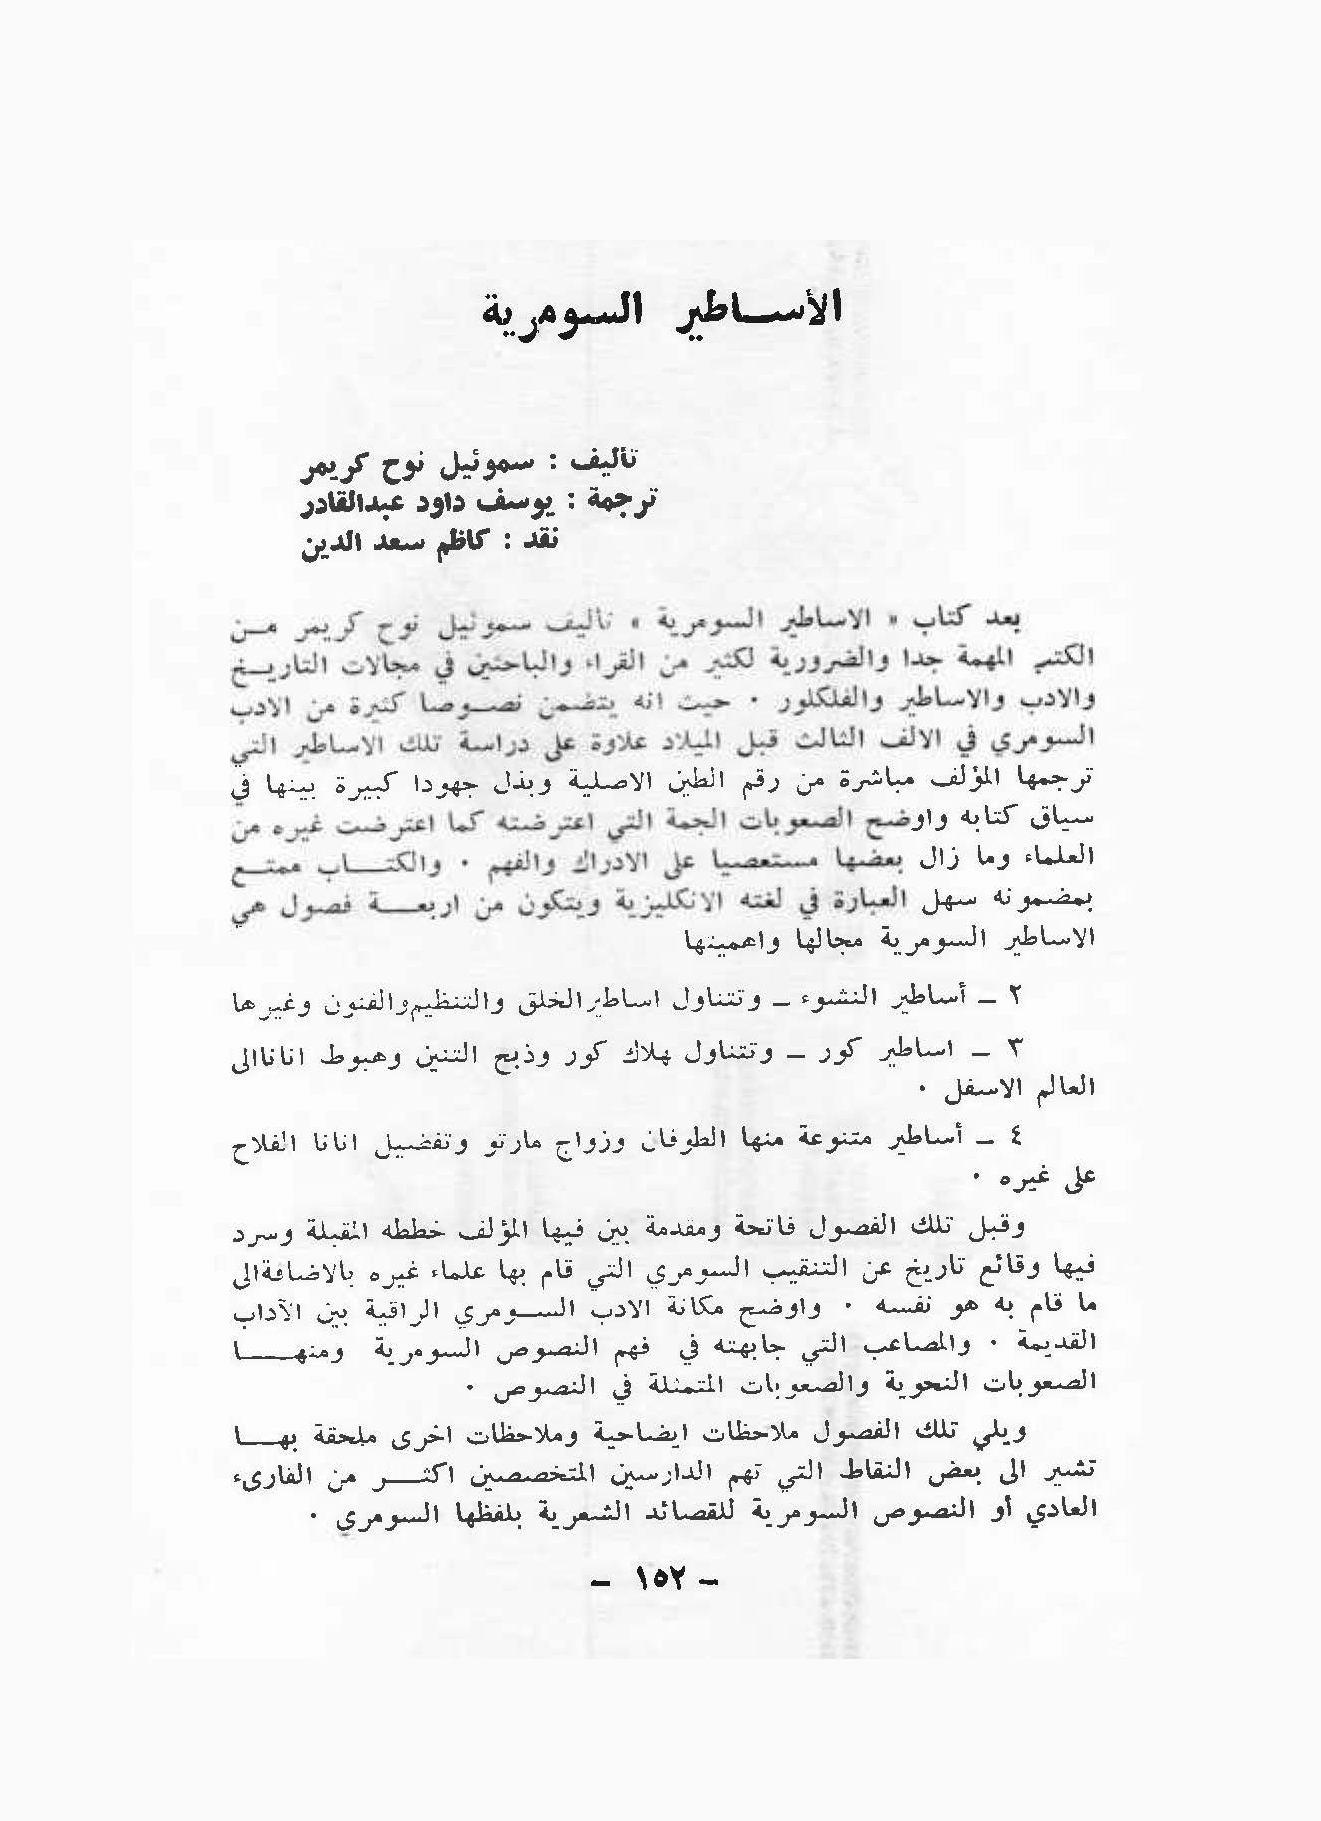 الأساطير السومرية
تأليف : سموئيل نوح كريمر
ترجمة : يوسف داود عبدالقادر
نقد : كاظم سعد الدين
يعد كتاب « الاساطير السومرية » تأليف سموئيل نوح كريمر من
الكتب المهمة جدا والضرورية لكثير من القراء والباحثين في مجالات التاريخ
والادب والاساطير والفلكلور . حيث انه يتضمن نصوصا كثيرة من الادب
السومري في الالف الثالث قبل الميلاد علاوة على دراسة تلك الاساطير التي
ترجمها المؤلف مباشرة من رقم الطين الاصلية وبذل جهودا كبيرة بينها في
سياق كتابه واوضح الصعوبات الجمة التي اعترضته كما اعترضت غيره من
العلماء وما زال بعضها مستعصيا على الادراك والفهم . والكتاب ممتع
بمضمونه سهل العبارة في لغته الانكليزية ويتكون من اربعة فصول هي
الاساطير السومرية مجالها واهميتها
٢ ــ أساطير النشوء ــ وتتناول اساطير الخلق والتنظيم والفنون وغيرها
٣ ــ اساطير كور ــ وتتناول هلاك كور وذبح التنين وهبوط اناناالى
العالم الاسفل .
٤ ــ أساطير متنوعة منها الطوفان وزواج مارتو وتفضيل انانا الفلاح
على غيره .
وقبل تلك الفصول فاتحة ومقدمة بين فيها المؤلف خططه المقبلة وسرد
فيها وقائع تاريخ عن التنقيب السومري التي قام بها علماء غيره بالاضافةالى
ما قام به هو نفسه . واوضح مكانة الادب السومري الراقية بين الآداب
القديمة . والمصاعب التي جابهته في فهم النصوص السومرية ومنها
الصعوبات النحوية والصعوبات المتمثلة في النصوص .
ويلي تلك الفصول ملاحظات ايضاحية وملاحظات اخرى ملحقة بها
تشير الى بعض النقاط التي تهم الدارسين المتخصصين اكثر من القارىء
العادي أو النصوص السومرية للقصائد الشعرية بلفظها السومري .
– ١٥٢ –